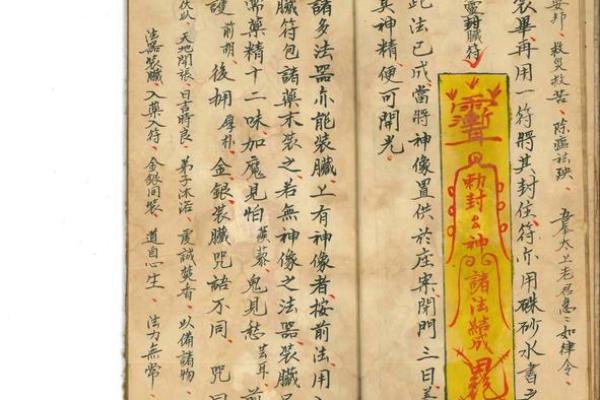 安邦、救災救苦、除瘟祛殃、吾奉太上老君急〻如律令、
裝畢再用一符將其封住符亦用硃砂水書
靈封臟符
勅封
神
諸法
成
此法已成當將神像置供於庄案閉門三日
其神精便可開光
諸多法器亦能裝臟上有神像者按前法用入
臟符包諸藥末裝之若無神像之法器裝臟
需藥精十二味加魔見怕蒺藜、鬼見愁蒼耳、前
護前胡、後拥厚朴、金銀裝臟咒語不同、咒曰
伏以、天地開張、日吉時良、弟子沐浴、虔誠焚香、以備諸物、
法器裝臟、入藥入符、金銀同裝、道自心生、法力無常、